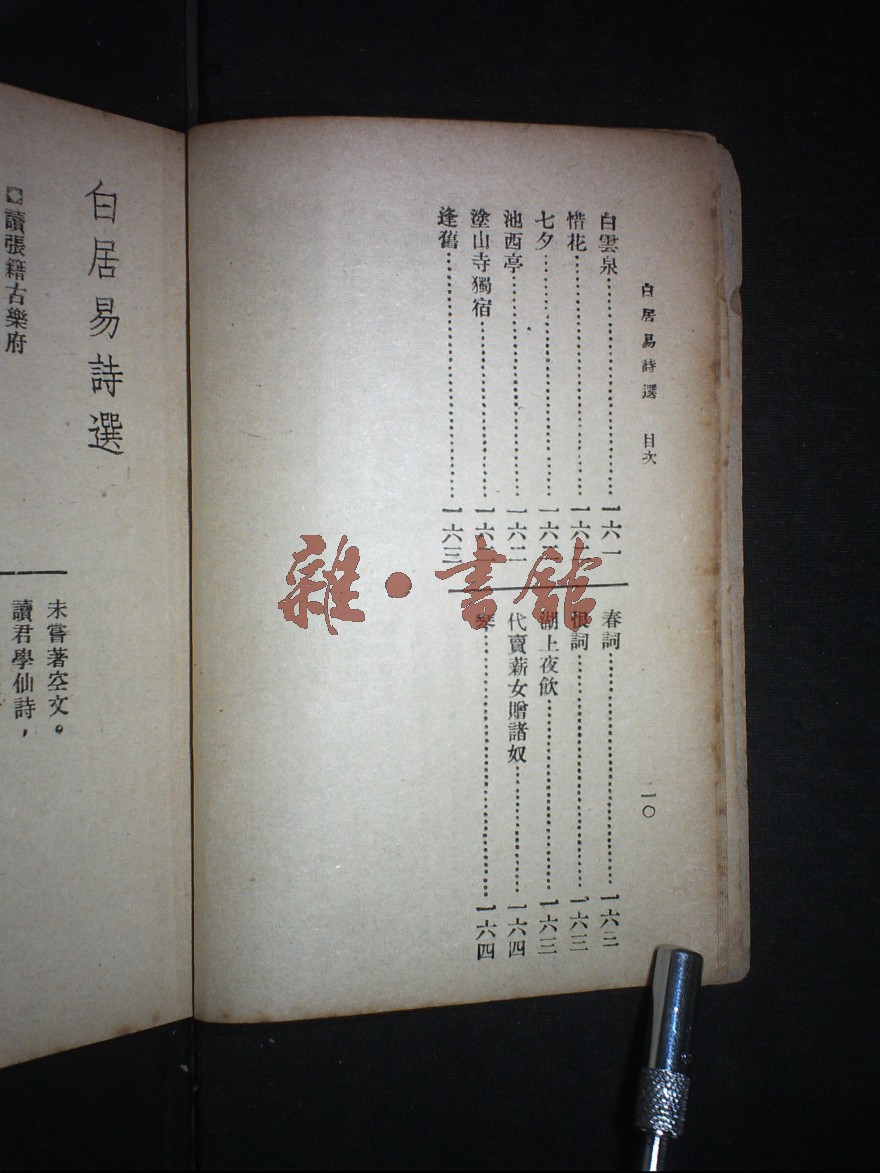 白居易詩選　目次
二〇
白雲泉………一六一
惜花………一六
七夕………一六
池西亭………一六二
塗山寺獨宿………一六
逢舊………一六三
春詞………一六三
恨詞………一六三
湖上夜飲………一六三
代賣薪女贈諸奴………一六四
琴………一六四
白居易詩選
讀張籍古樂府
未嘗著空文。
讀君學仙詩，
雜·書館